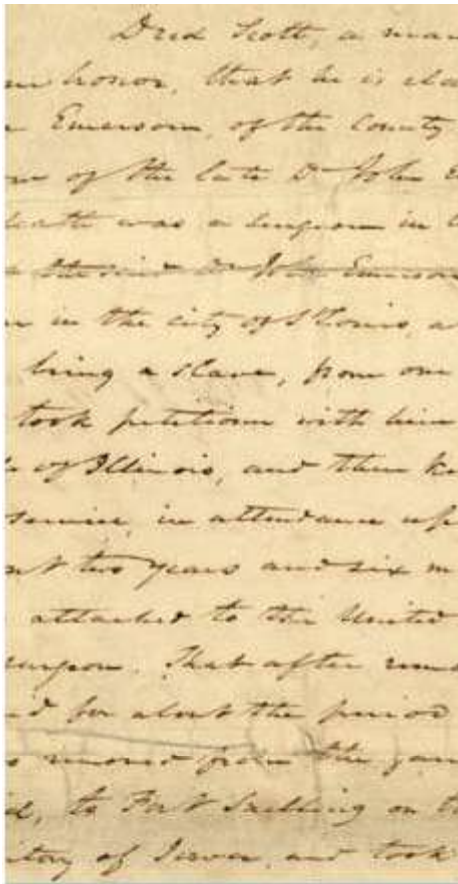 Dred Scott, a man
honor, that he is cla
Emerson, of the County
of the late Dr John E
death was a surgeon in
the said Dr John Emerson
in the city of St Louis, a
being a slave, from one
took petitioner with him
of Illinois, and then k
service, in attendance up
two years and six m
attached to the United
surgeon. That after rem
d for about the period
removed from the gar
id, to Fort Snelling on t
itory of Iowa, and took